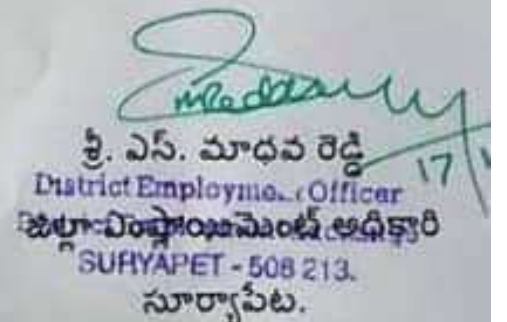 శ్రీ. ఎస్. మాధవ రెడ్డి
17/
District Employme.. Officer
జిల్లా ఎంప్లాయిమెంట్ అధికారి
SURYAPET - 508 213.
సూర్యాపేట.